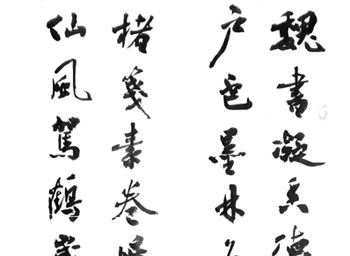 魏書凝香德
户邑墨林
楮箋素卷
仙風駕鶴歲